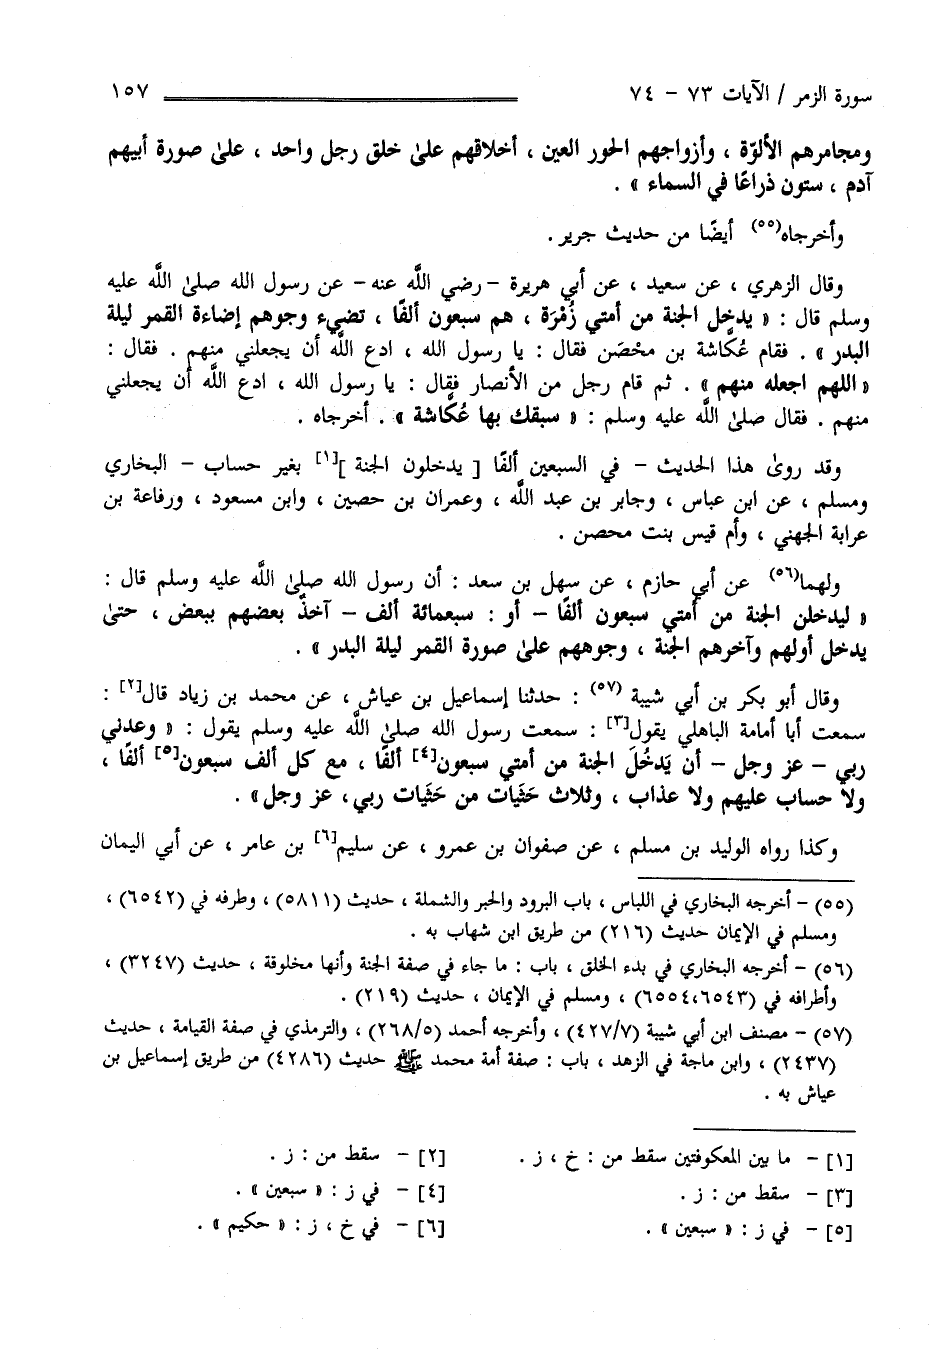 سورة الزمر / الآيات ٧٣ - ٧٤ ١٥٧
ومجامرهم الألوّة ، وأزواجهم الحور العين ، أخلاقهم علىٰ خلق رجل واحد ، علىٰ صورة أبيهم
آدم ، ستون ذراعًا في السماء » .
وأخرجاه(٥٥) أيضًا من حديث جرير .
وقال الزهري ، عن سعيد ، عن أبي هريرة - رضي اللَّه عنه - عن رسول الله صلىٰ اللَّه عليه
وسلم قال : « يدخل الجنة من أمتي زُمْرَة ، هم سبعون ألفًا ، تضيء وجوهم إضاءة القمر ليلة
البدر » . فقام عُكَّاشة بن محْصَن فقال : يا رسول الله ، ادع اللَّه أن يجعلني منهم . فقال :
« اللهم اجعله منهم » . ثم قام رجل من الأنصار فقال : يا رسول الله ، ادع اللَّه أن يجعلني
منهم . فقال صلىٰ اللَّه عليه وسلم : « سبقك بها عُكَّاشة » . أخرجاه .
وقد روىٰ هذا الحديث - في السبعين ألفًا [ يدخلون الجنة ][١] بغير حساب - البخاري
ومسلم ، عن ابن عباس ، وجابر بن عبد اللَّه ، وعمران بن حصين ، وابن مسعود ، ورفاعة بن
عرابة الجهني ، وأم قيس بنت محصن .
ولهما(٥٦) عن أبي حازم ، عن سهل بن سعد : أن رسول الله صلىٰ اللَّه عليه وسلم قال :
« ليدخلن الجنة من أمتي سبعون ألفًا - أو : سبعمائة ألف - آخذٌ بعضهم ببعض ، حتىٰ
يدخل أولهم وآخرهم الجنة ، وجوههم علىٰ صورة القمر ليلة البدر » .
وقال أبو بكر بن أبي شيبة (٥٧) : حدثنا إسماعيل بن عياش ، عن محمد بن زياد قال[٢] :
سمعت أبا أمامة الباهلي يقول[٣] : سمعت رسول الله صلىٰ اللَّه عليه وسلم يقول : « وعدني
ربي - عز وجل - أن يَدخُلَ الجنة من أمتي سبعون[٤] ألفًا ، مع كل ألف سبعون[٥] ألفًا ،
ولا حساب عليهم ولا عذاب ، وثلاث حَثَيات من حَثَيات ربي، عز وجل» .
وكذا رواه الوليد بن مسلم ، عن صفوان بن عمرو ، عن سليم[٦] بن عامر ، عن أبي اليمان
(٥٥) - أخرجه البخاري في اللباس ، باب البرود والحبر والشملة ، حديث (٥٨١١) ، وطرفه في (٦٥٤٢) ،
ومسلم في الإيمان حديث (٢١٦) من طريق ابن شهاب به .
(٥٦) - أخرجه البخاري في بدء الخلق ، باب : ما جاء في صفة الجنة وأنها مخلوقة ، حديث (٣٢٤٧) ،
وأطرافه في (٦٥٤٣،٦٥٥٤) ، ومسلم في الإيمان ، حديث (٢١٩) .
(٥٧) - مصنف ابن أبي شيبة (٤٢٧/٧) ، وأخرجه أحمد (٢٦٨/٥) ، والترمذي في صفة القيامة ، حديث
(٢٤٣٧) ، وابن ماجة في الزهد ، باب : صفة أمة محمد ﷺ حديث (٤٢٨٦) من طريق إسماعيل بن
عياش به .
[١] - ما بين المعكوفتين سقط من : خ ، ز . [٢] - سقط من : ز .
[٣] - سقط من : ز . [٤] - في ز : « سبعين » .
[٥] - في ز : « سبعين » . [٦] - في خ ، ز : « حكيم » .